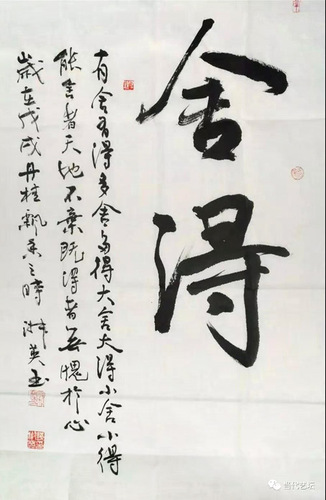 舍得
有舍有得多舍多得大舍大得小舍小得
能舍者天地不弃既得者无愧于心
岁在戊戌丹桂飘香之时 洪英玉
当代艺坛